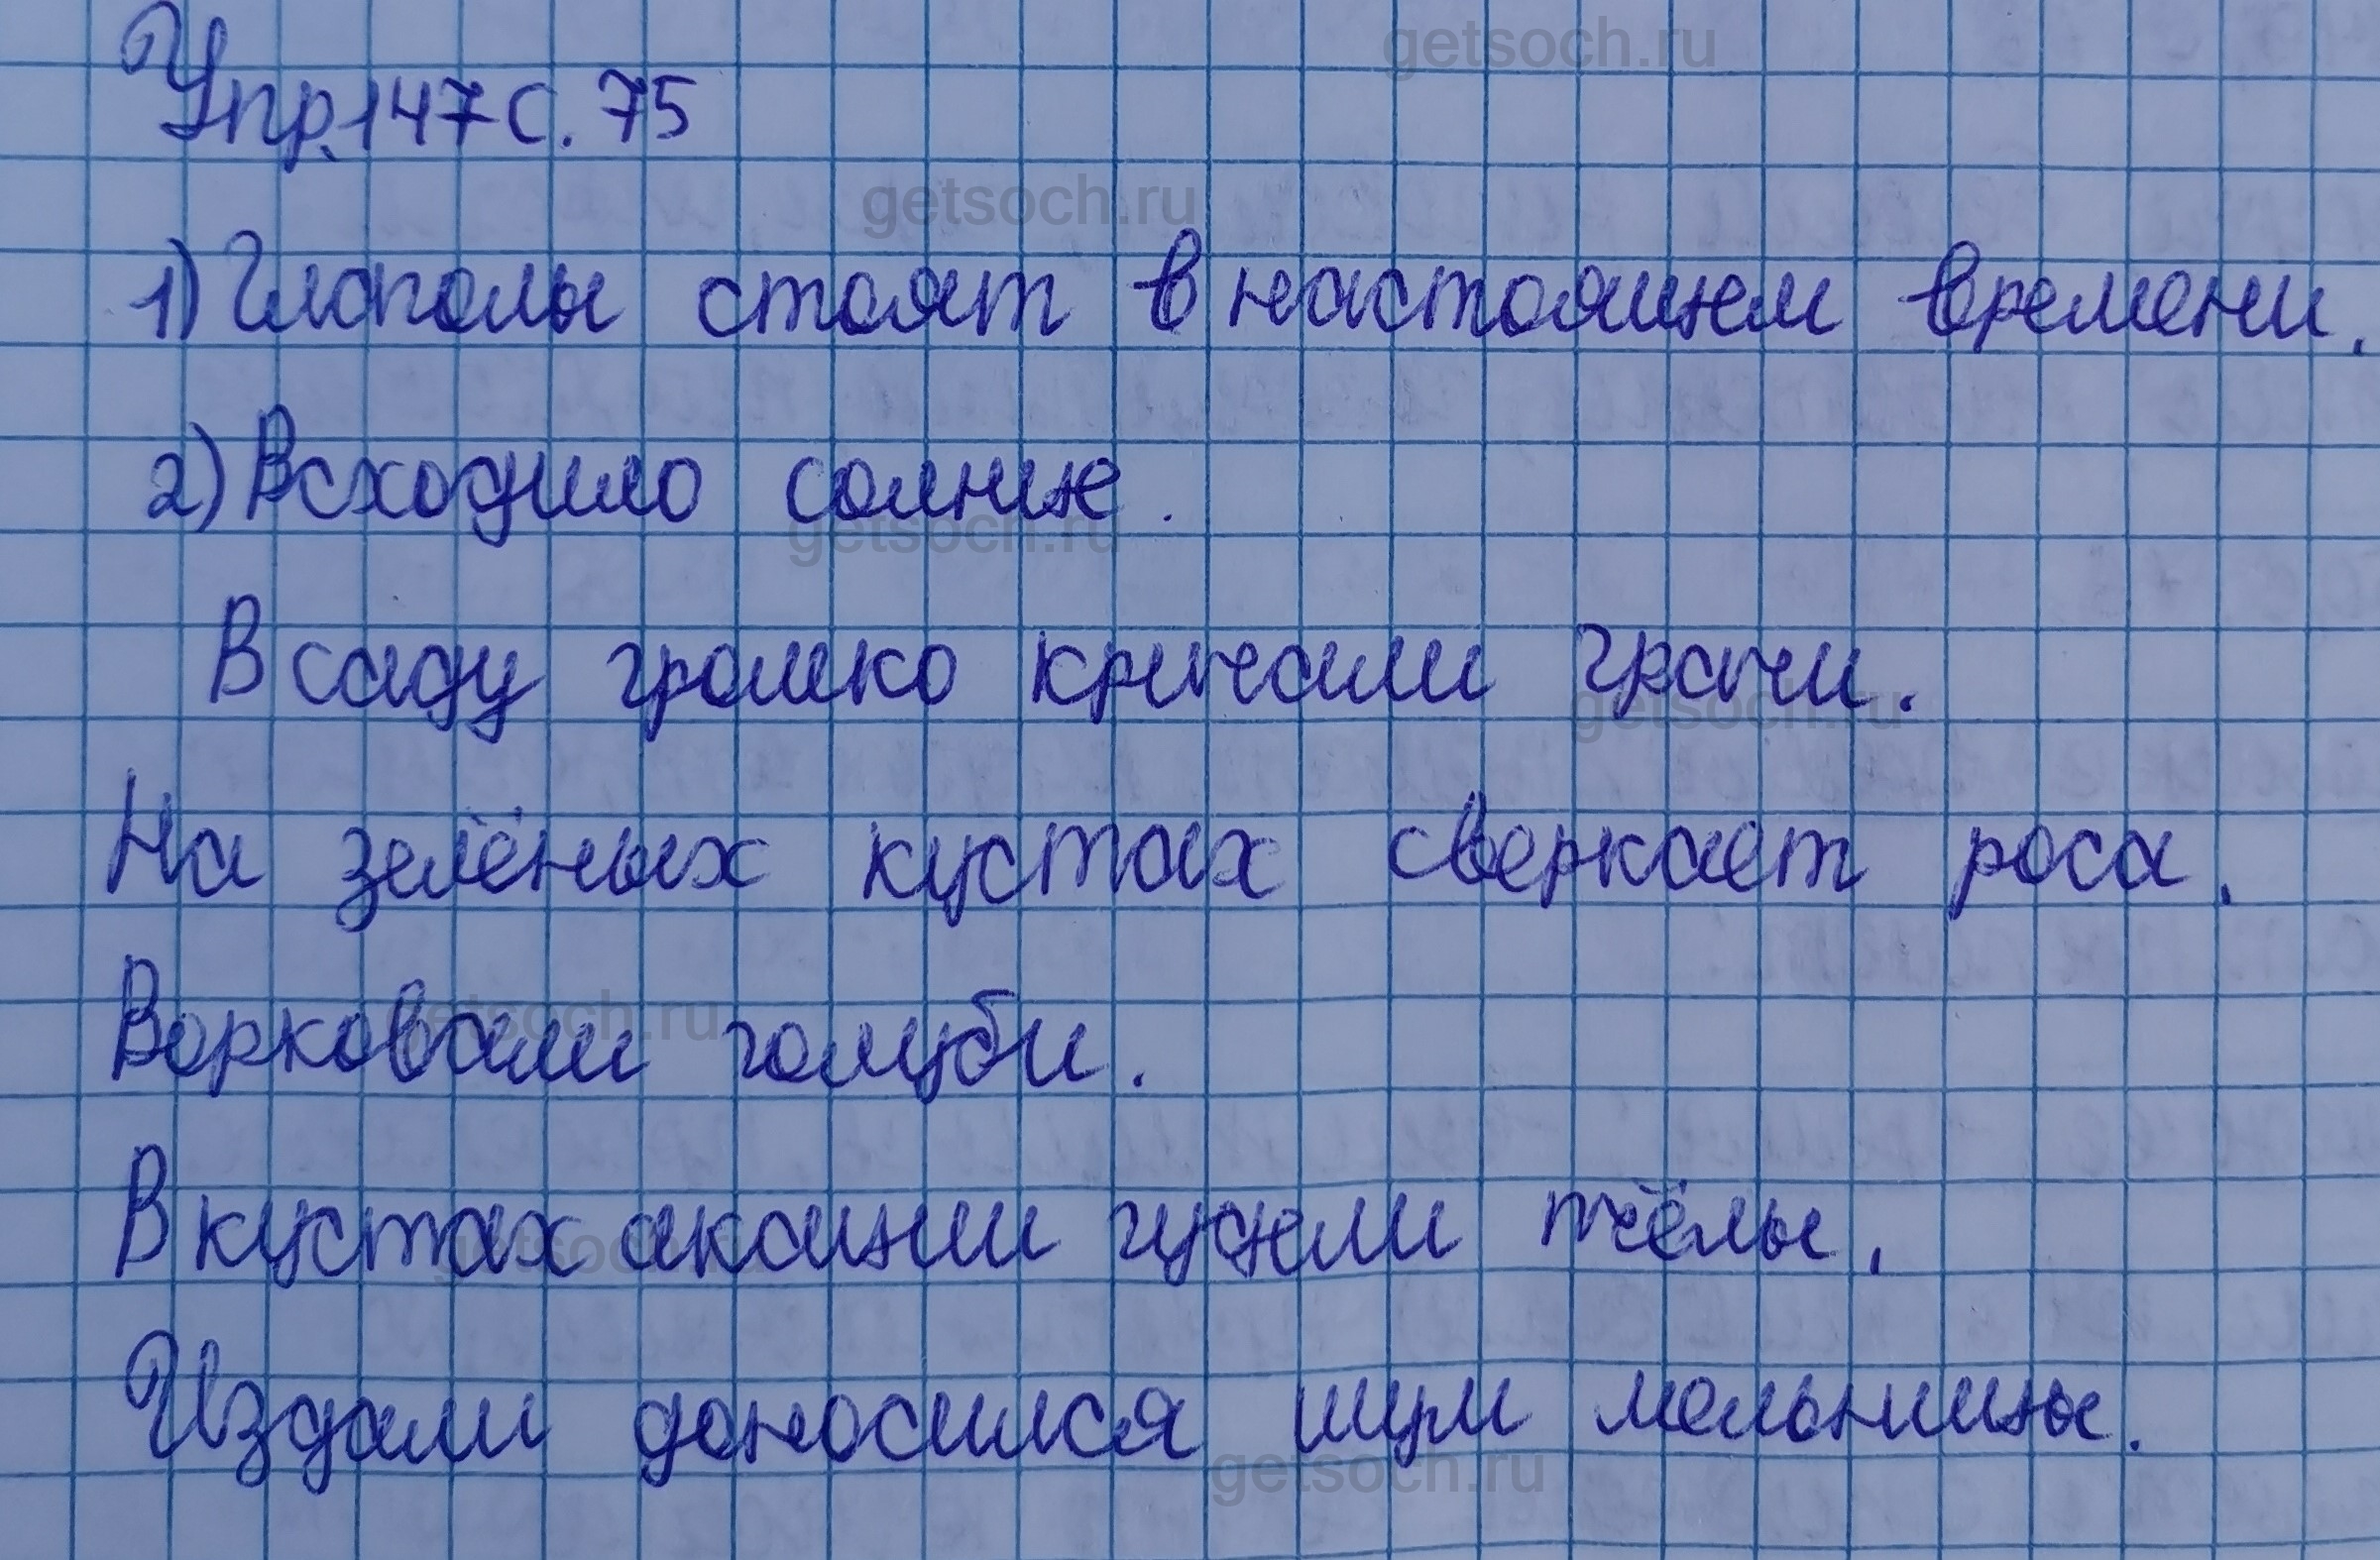 getsoch.ru
Упр.147 с. 75
getsoch.ru
1) Глаголы стоят в настоящем времени.
2) Всходило солнце.
getsoch.ru
В саду громко кричали грачи.
getsoch.ru
На зелёных кустах сверкает роса.
Ворковали голуби.
getsoch.ru
В кустах акации гудели пчёлы.
getsoch.ru
Издали доносился шум мельницы.
getsoch.ru